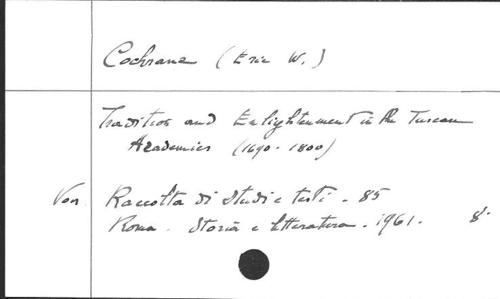 Cochrane (Eric W.)
Tradition and Enlightenment in the Tuscan
Academies (1690-1800)
Von. Raccolta di Studi e testi - 85
Roma. Storia e letteratura. 1961. 8°